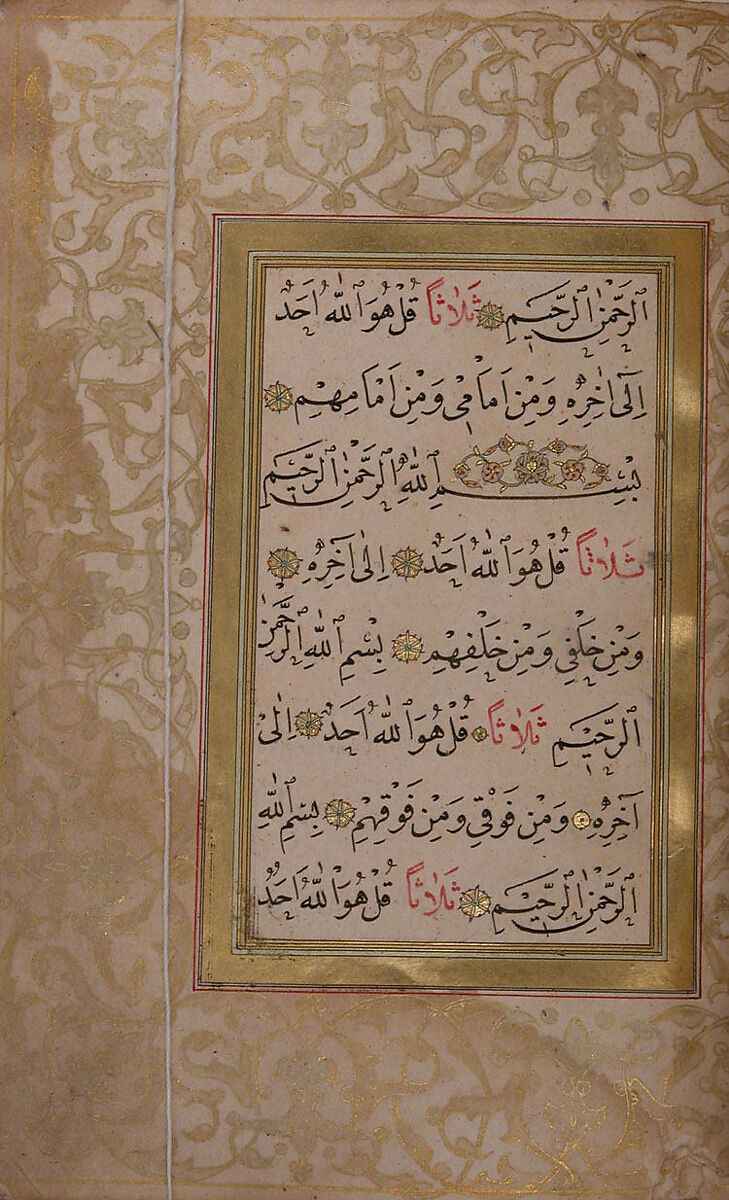 الرَّحْمٰنِ الرَّحِيمِ ثَلَاثًا قُلْ هُوَ اللّٰهُ اَحَدٌ
اِلٰى اٰخِرِهِ وَمِنْ اَمَامِي وَمِنْ اَمَامِهِمْ
بِسْمِ اللّٰهِ الرَّحْمٰنِ الرَّحِيمِ
ثَلَاثًا قُلْ هُوَ اللّٰهُ اَحَدٌ اِلٰى اٰخِرِهِ
وَمِنْ خَلْفِي وَمِنْ خَلْفِهِمْ بِسْمِ اللّٰهِ الرَّحْمٰنِ
الرَّحِيمِ ثَلَاثًا قُلْ هُوَ اللّٰهُ اَحَدٌ اِلٰى
آخِرِهِ وَمِنْ فَوْقِي وَمِنْ فَوْقِهِمْ بِسْمِ اللّٰهِ
الرَّحْمٰنِ الرَّحِيمِ ثَلَاثًا قُلْ هُوَ اللّٰهُ اَحَدٌ